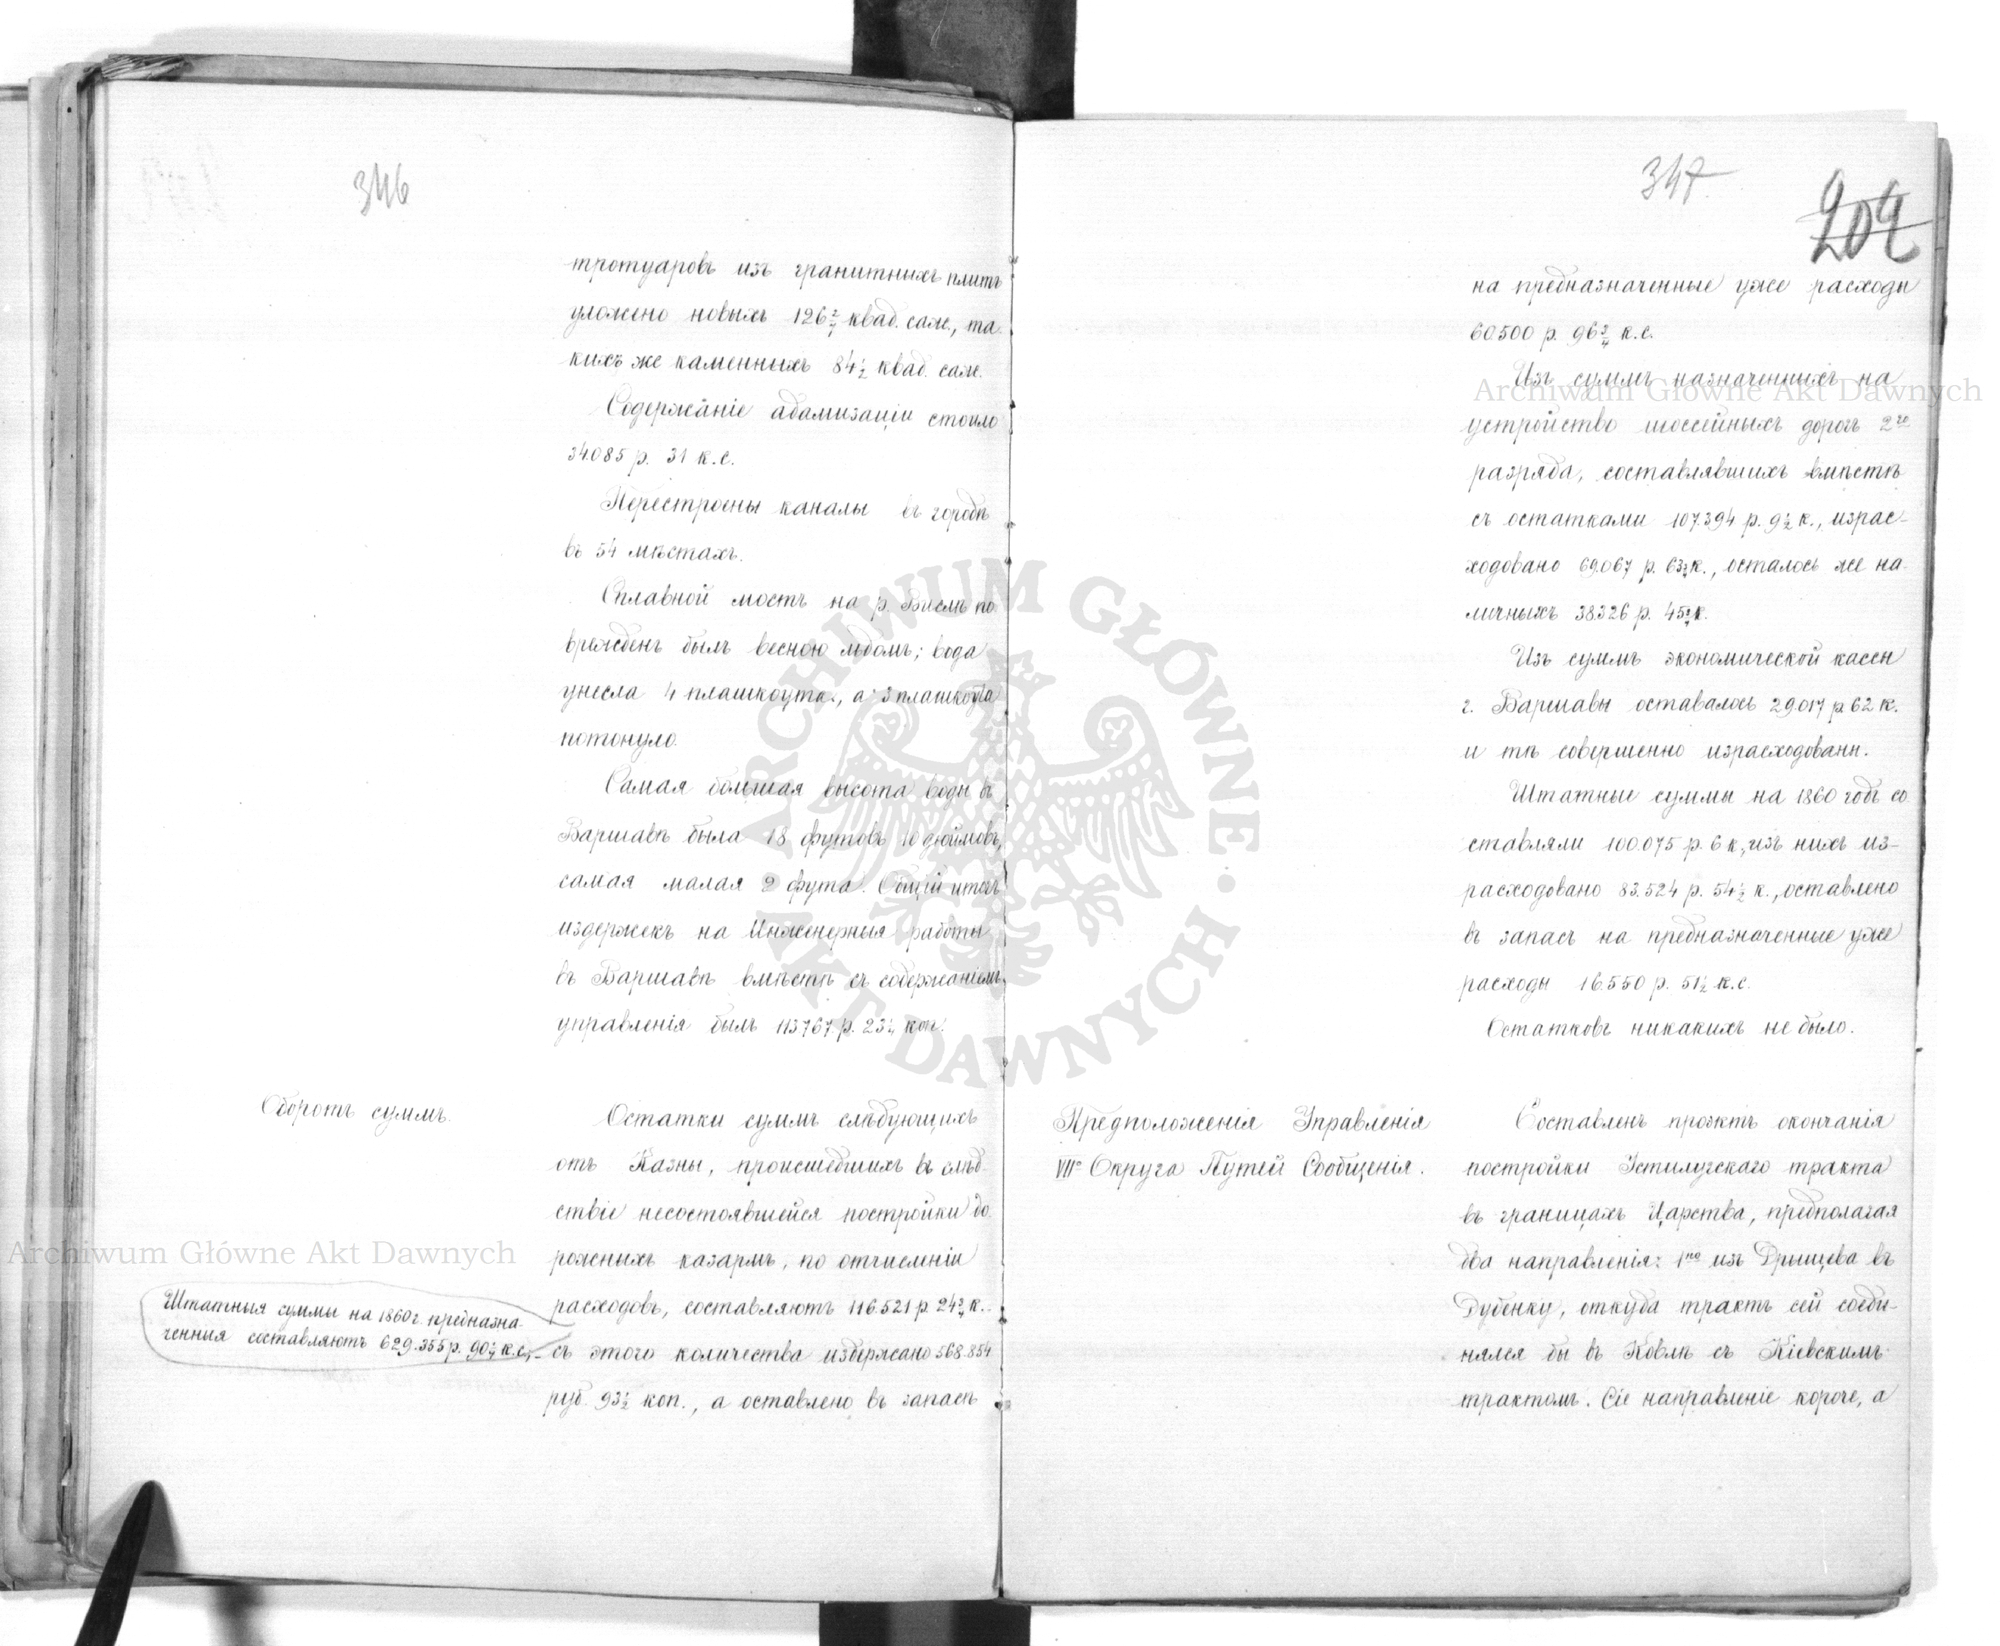 346
тротуаровъ изъ гранитныхъ плитъ
уложено новыхъ 126 2/4 квад. саж., та-
кихъ же каменныхъ 84 1/2 квад. саж.
Содержаніе адамизаціи стоило
34.085 р. 31 к. с.
Перестроены каналы въ городѣ
въ 54 мѣстахъ.
Сплавной мостъ на р. Вислѣ по-
врежденъ былъ весною льдомъ; вода
унесла 4 плашкоута, а 3 плашкоута
потонуло.
Самая большая высота воды въ
Варшавѣ была 18 футовъ 10 дюймовъ,
самая малая 2 фута. Общій итогъ
издержекъ на Инженерныя работы
въ Варшавѣ вмѣстѣ съ содержаніемъ
управленія былъ 113.767 р. 23 1/4 коп.
Оборотъ суммъ.
Остатки суммъ слѣдующихъ
отъ Казны, происшедшихъ въ слѣд-
ствіе несостоявшейся постройки до-
рожныхъ казармъ, по отчисленіи
расходовъ, составляютъ 116.521 р. 24 3/4 к.
Штатныя суммы на 1860 г. предназна-
ченныя составляютъ 629.355 р. 90 1/4 к. с.,
съ этого количества издержано 568.854
руб. 93 1/2 коп., а оставлено въ запасѣ
347
202
на предназначенные уже расходы
60.500 р. 96 3/4 к. с.
Изъ суммъ назначенныхъ на
устройство шоссейныхъ дорогъ 2го
разряда, составлявшихъ вмѣстѣ
съ остатками 107.394 р. 9 1/4 к., израс-
ходовано 69.067 р. 63 2/4 к., осталось же на-
личныхъ 38.326 р. 45 3/4 к.
Изъ суммъ экономической кассы
г. Варшавы оставалось 29.017 р. 62 к.
и тѣ совершенно израсходованы.
Штатные суммы на 1860 годъ со-
ставляли 100.075 р. 6 к., изъ нихъ из-
расходовано 83.524 р. 54 1/2 к., оставлено
въ запасъ на предназначенные уже
расходы 16.550 р. 51 1/2 к. с.
Остатковъ никакихъ не было.
Предположенія Управленія
VIIго Округа Путей Сообщенія.
Составленъ проэктъ окончанія
постройки Устилугскаго тракта
въ границахъ Царства, предполагая
два направленія: 1ое изъ Дрыщева въ
Дубенку, откуда трактъ сей соеди-
нялся бы въ Ковлѣ съ Кіевскимъ
трактомъ. Сіе направленіе короче, а
Archiwum Główne Akt Dawnych
Archiwum Główne Akt Dawnych
ARCHIWUM GŁÓWNE · AKT DAWNYCH ·